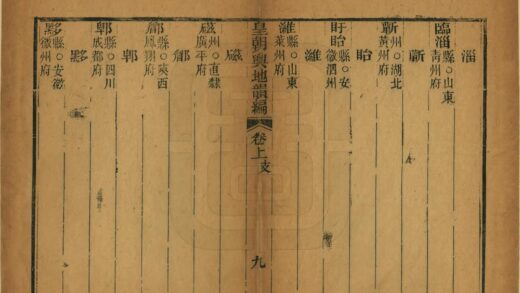 淄
臨淄縣○山東
青州府
蘄
蘄州○湖北
黃州府
眙
盱眙縣○安
徽泗州
濰
濰縣○山東
萊州府
皇朝輿地韻編 卷上支 九
磁
磁州○直隸
廣平府
郿
郿縣○陝西
鳳翔府
郫
郫縣○四川
成都府
黟
黟縣○安徽
徽州府